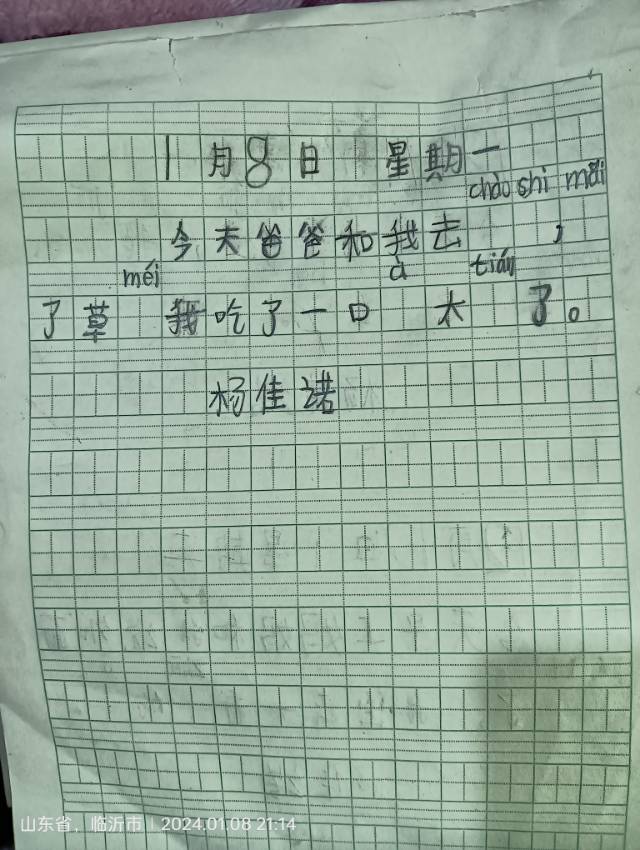 1月8日 星期一
chāo shì mǎi
今天爸爸和我去 ,
méi à tián
了草 我吃了一口 太 了。
杨佳诺
山东省，临沂市 | 2024.01.08 21:14